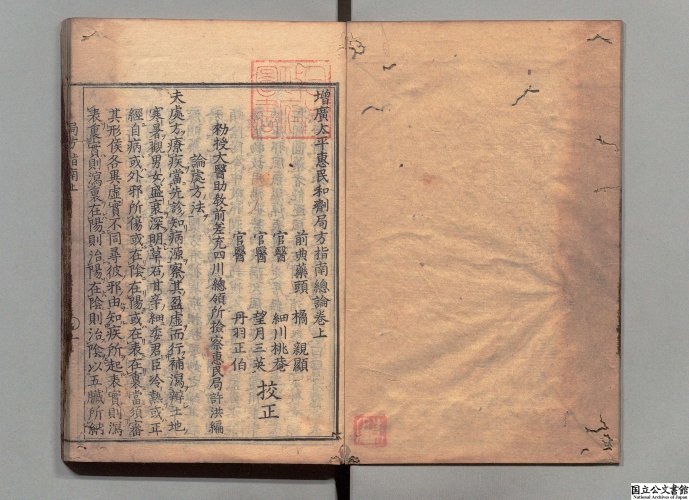 增廣太平惠民和劑局方指南總論卷上
前典藥頭 橘 親顯
官醫 細川桃菴
官醫 望月三英
官醫 丹羽正伯
校正
勑授太醫助教前差充四川總領所撿察惠民局許洪編
論處方法
夫處方療疾當先診知病源察其盈虛而行補瀉辨土地
寒暑觀男女盛衰深明草石甘辛細委君臣冷熱或正
經自病或外邪所傷或在陰在陽或在表在裏當須審
其形候各異虛實不同尋彼邪由知疾所起表實則瀉
表裏實則瀉裏在陽則治陽在陰則治陰以五臟所納
局方指南上
一
国立公文書館
National Archives of Japan